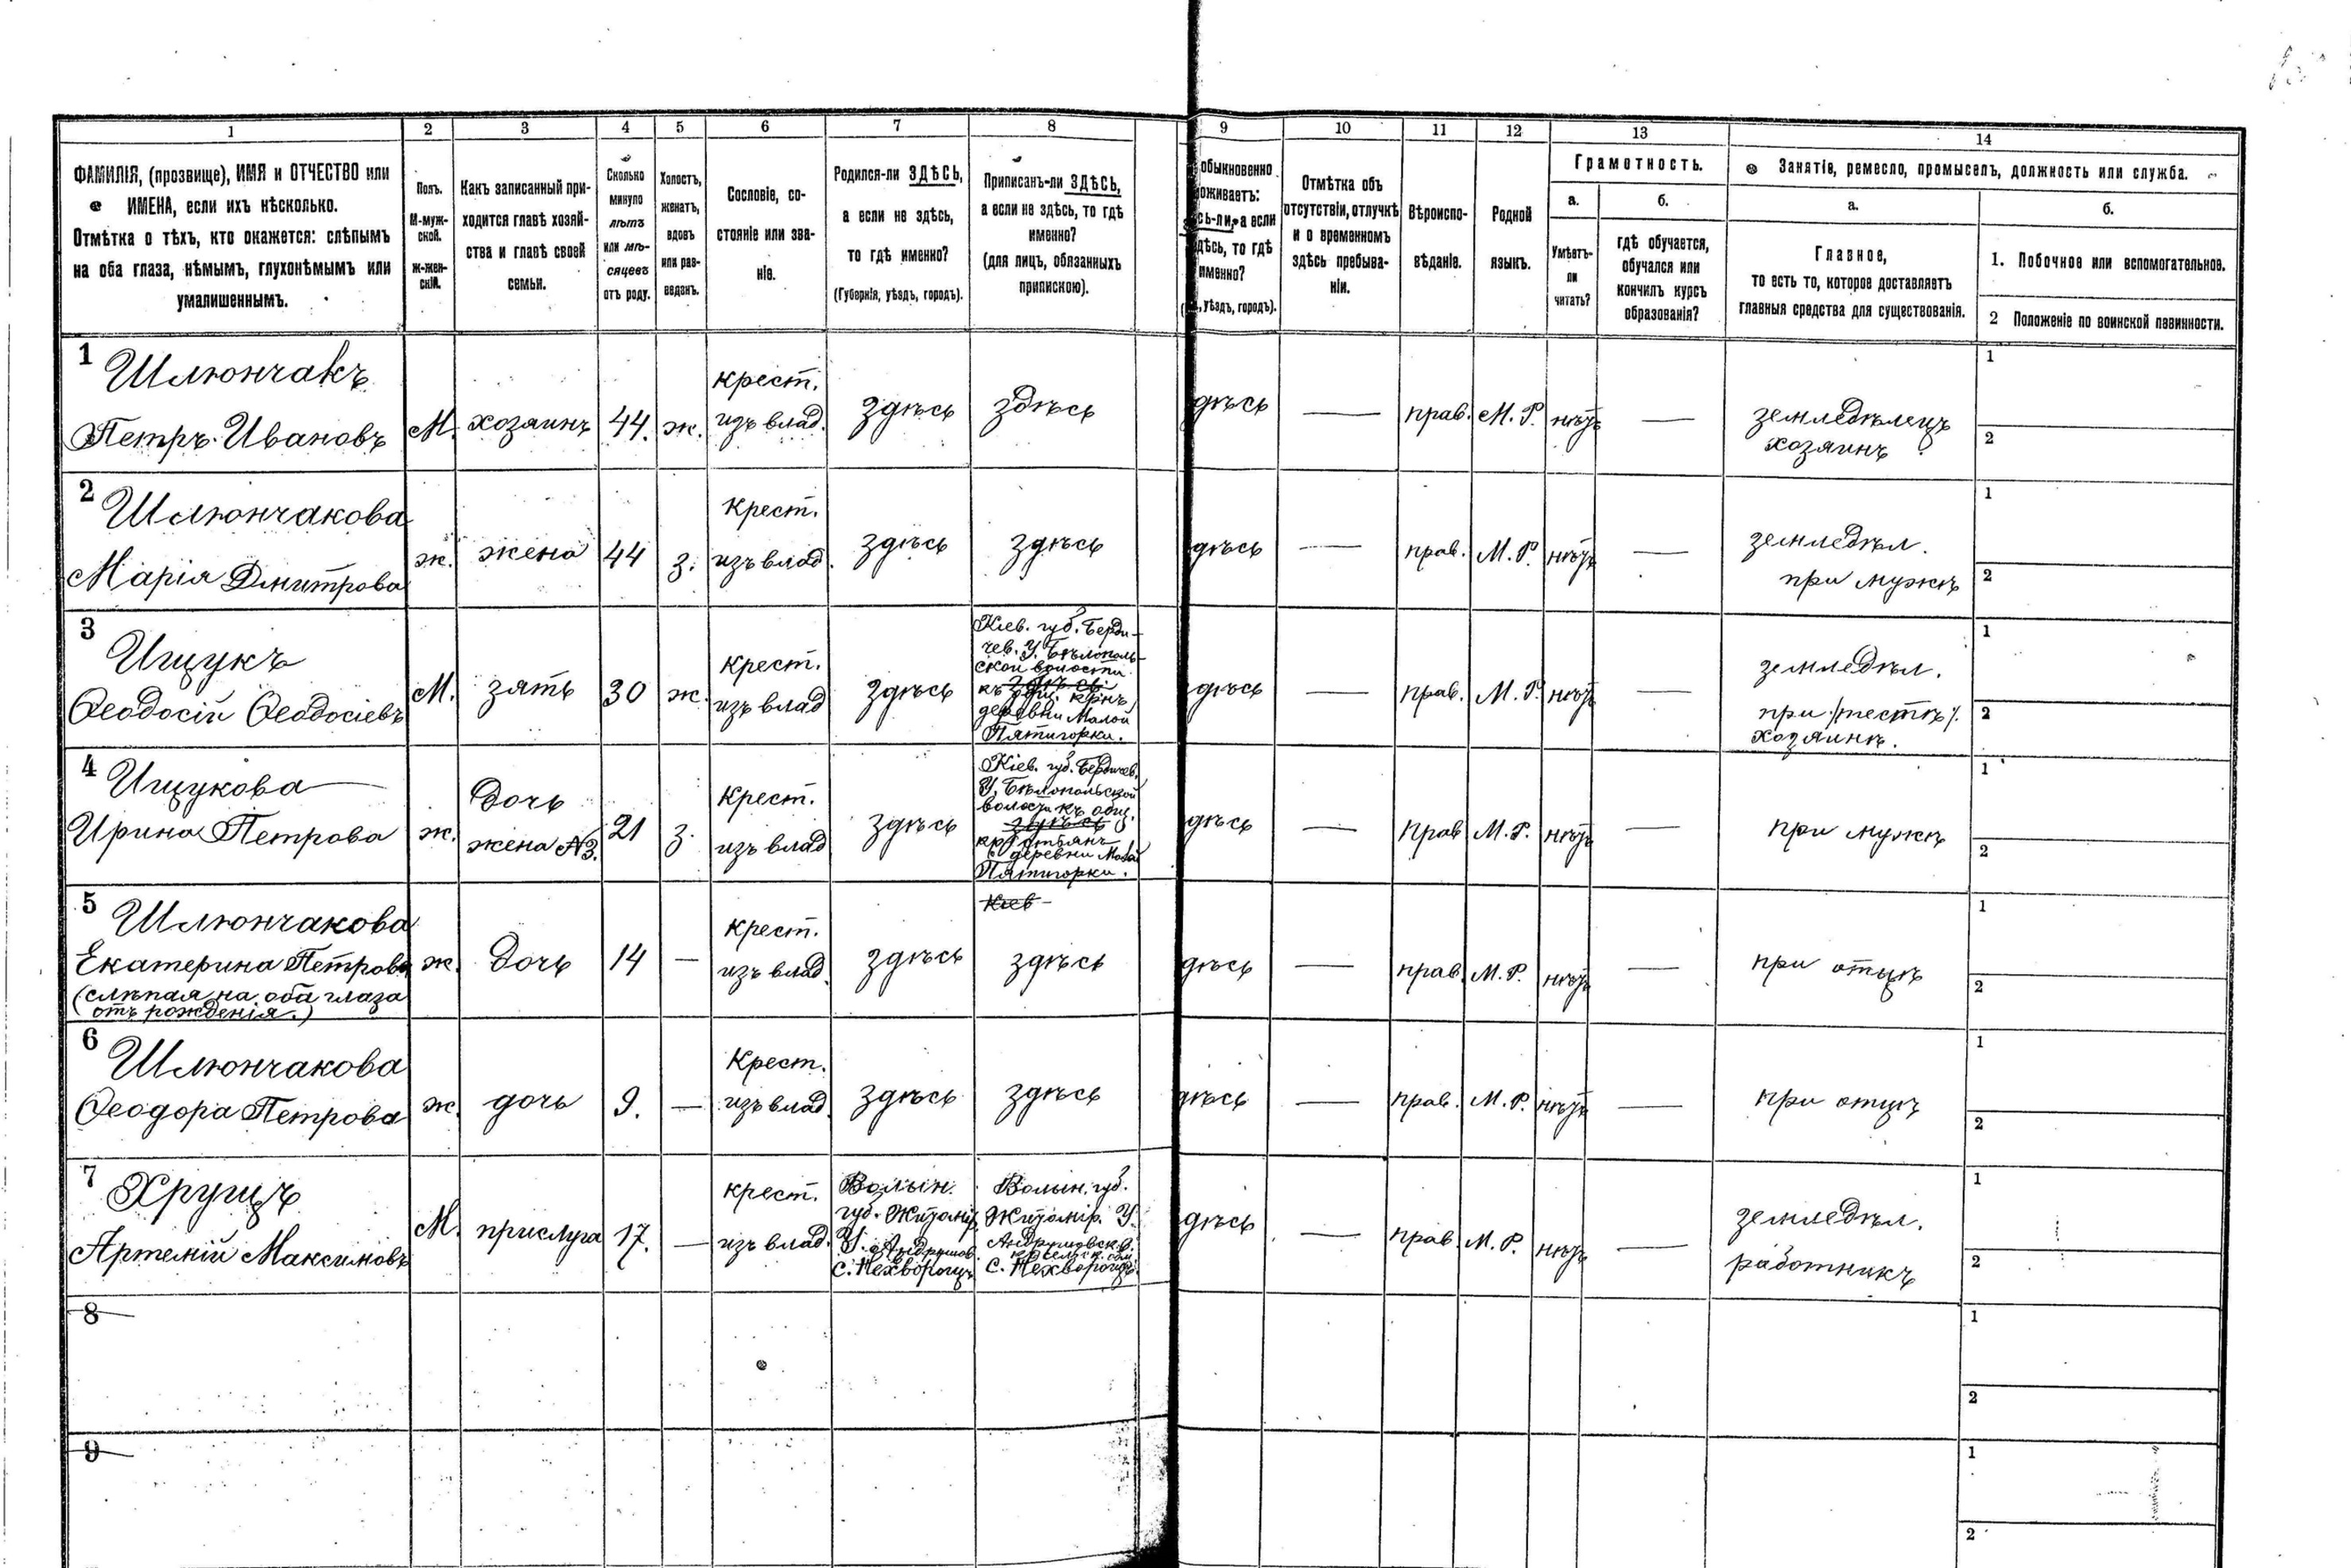 1 2 3 4 5 6 7 8 9 10 11 12 13 14
ФАМИЛІЯ, (прозвище), ИМЯ и ОТЧЕСТВО или
ИМЕНА, если ихъ нѣсколько.
Отмѣтка о тѣхъ, кто окажется: слѣпымъ
на оба глаза, нѣмымъ, глухонѣмымъ или
умалишеннымъ.
Полъ.
М-муж-
ской.
ж-жен-
скій.
Какъ записанный при-
ходится главѣ хозяй-
ства и главѣ своей
семьи.
Сколько
минуло
лѣтъ
или мѣ-
сяцевъ
отъ роду.
Холостъ,
женатъ,
вдовъ
или раз-
веданъ.
Сословіе, со-
стояніе или зва-
ніе.
Родился-ли ЗДѢСЬ,
а если не здѣсь,
то гдѣ именно?
(Губернія, уѣздъ, городъ).
Приписанъ-ли ЗДѢСЬ,
а если не здѣсь, то гдѣ
именно?
(для лицъ, обязанныхъ
припискою).
обыкновенно
оживаетъ:
сь-ли, а если
дѣсь, то гдѣ
именно?
, уѣздъ, городъ).
Отмѣтка объ
отсутствіи, отлучкѣ
и о временномъ
здѣсь пребыва-
ніи.
Вѣроиспо-
вѣданіе.
Родной
языкъ.
Грамотность.
а.
Умѣетъ-
ли
читать?
б.
гдѣ обучается,
обучался или
кончилъ курсъ
образованія?
Занятіе, ремесло, промыселъ, должность или служба.
а.
Главное,
то есть то, которое доставляетъ
главныя средства для существованія.
б.
1. Побочное или вспомогательное.
2 Положеніе по воинской повинности.
1 Шлюнчакъ
Петръ Ивановъ
М.
хозяинъ
44.
ж.
крест.
изъ влад.
здѣсь
здѣсь
дѣсь
—
прав.
М. Р.
нѣтъ
—
земледѣлецъ
хозяинъ
1
2
2 Шлюнчакова
Марія Дмитрова
ж.
жена
44
з.
крест.
изъ влад.
здѣсь
здѣсь
дѣсь
—
прав.
М. Р.
нѣтъ
—
земледѣл.
при мужѣ
1
2
3 Ищукъ
Ѳеодосій Ѳеодосіевъ
М.
зять
30
ж.
крест.
изъ влад
здѣсь
Кіев. губ. Берди-
чев. У. Бѣлополь-
ской волости
здѣсь
къ общ. крнъ
деревни Малой
Пятигорки.
здѣсь
—
прав.
М. Р.
нѣтъ
—
земледѣл.
при /тестѣ/
хозяинѣ.
1
2
4 Ищукова
Ирина Петрова
ж.
Дочь
жена №3.
21
з.
крест.
изъ влад
здѣсь
Кіев. губ. Бердичев.
У, Бѣлопольской
волости къ общ.
здѣсь
крестьянъ
деревни Малой
Пятигорки.
дѣсь
—
прав
М. Р.
нѣтъ
—
при мужѣ
1
2
5 Шлюнчакова
Екатерина Петрова
(слѣпая на оба глаза
отъ рожденія.)
ж.
Дочь
14
—
крест.
изъ влад.
здѣсь
Кіев
здѣсь
дѣсь
—
прав.
М. Р.
нѣтъ
—
при отцѣ
1
2
6 Шлюнчакова
Ѳеодора Петрова
ж.
дочь
9.
—
Крест.
изъ влад.
здѣсь
здѣсь
дѣсь
—
прав.
М. Р.
нѣтъ
—
при отцѣ
1
2
7 Хрущъ
Артемій Максимовъ
М.
прислуга
17.
—
крест.
изъ влад.
Волын.
губ. Житомір.
У. Андрушов.
с. Нехворощъ
Волын. губ.
Житомір. У.
Андрушовск. в.
с. Нехворощъ.
дѣсь
—
прав.
М. Р.
нѣтъ
—
земледѣл.
работникъ
1
2
8
1
2
9
1
2